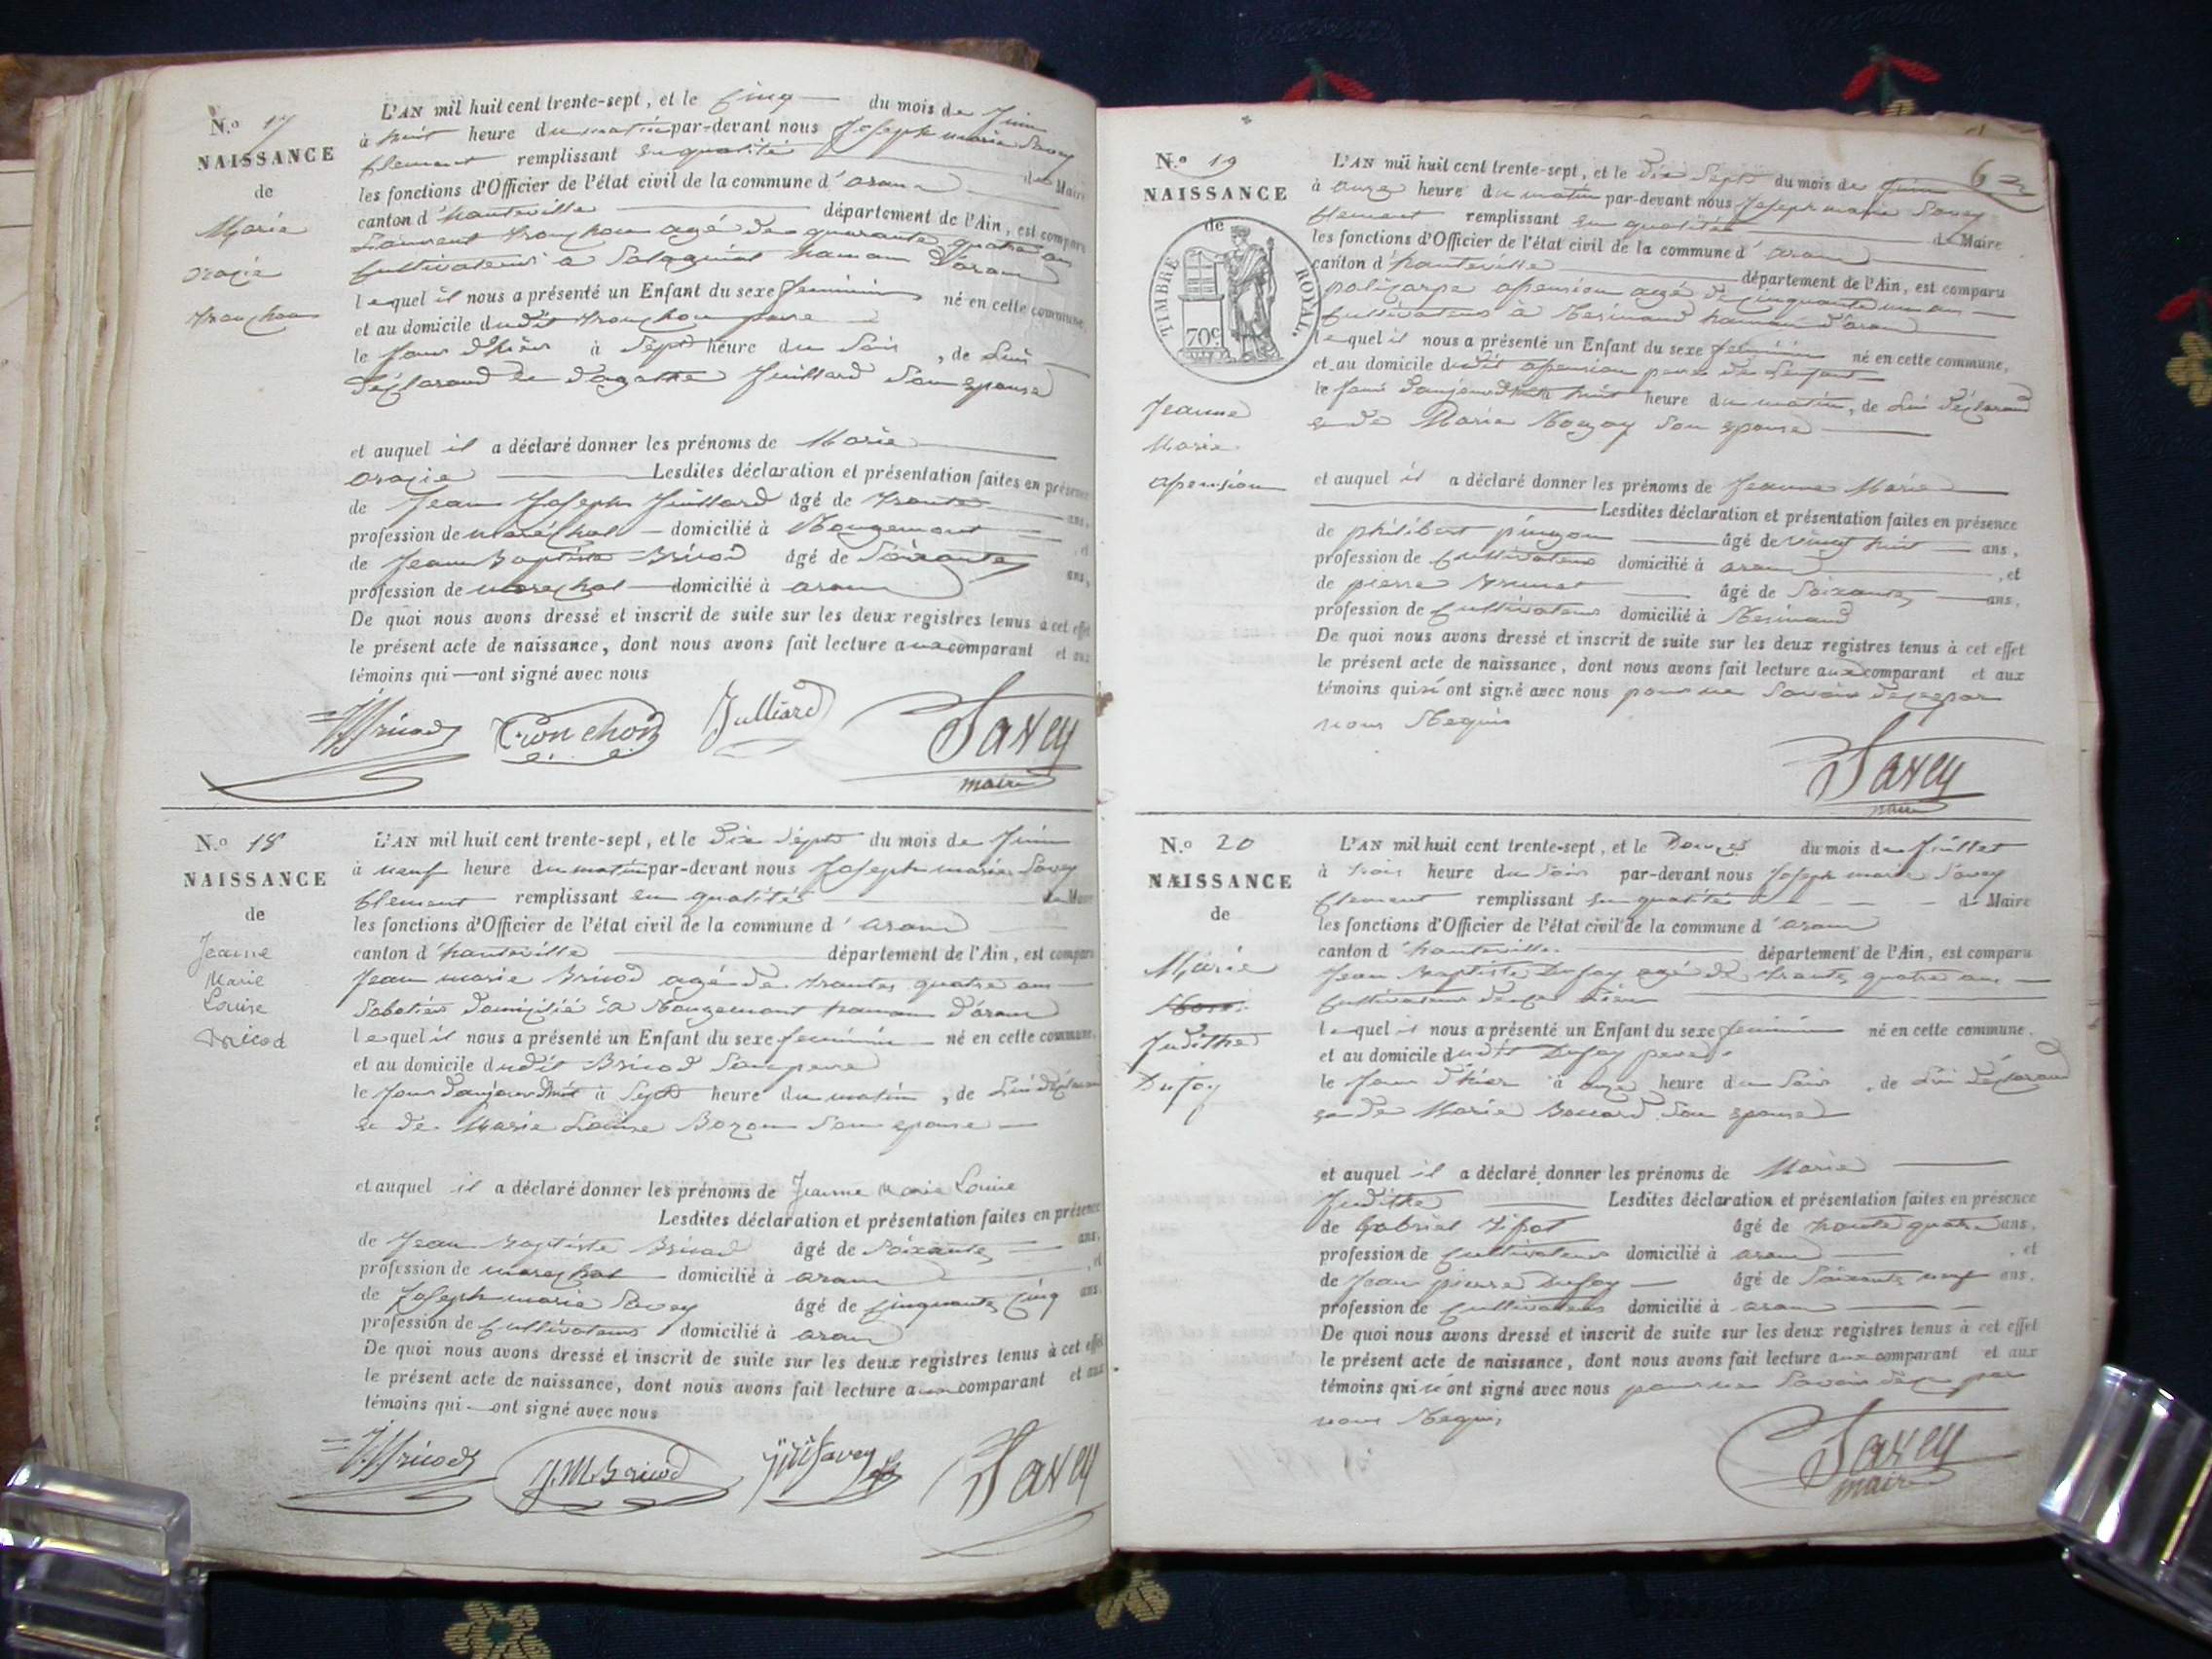 N.o 17
NAISSANCE
de
Marie
Tronchon
L'AN mil huit cent trente-sept, et le cinq du mois de Juin
à huit heure du matin par-devant nous Joseph marie Savey
Clement remplissant en qualité de Maire
les fonctions d'Officier de l'état civil de la commune d'aran
canton d'hauteville département de l'Ain, est comparu
Laurent tronchon agé de quarante quatre ans
Cultivateur à hamau d'aran
lequel il nous a présenté un Enfant du sexe feminin né en cette commune,
et au domicile dudit tronchon pere
le Jour d'hier à Sept heure du Soir, de Lui
déclarand et d'agathe Juillard Son epouse
et auquel il a déclaré donner les prénoms de Marie
Lesdites déclaration et présentation faites en présence
de Jean Joseph Juillard âgé de trante ans,
profession de maréchal domicilié à Rougemont, et
de Jean Baptiste Bricod âgé de Soixante ans,
profession de marechal domicilié à aran
De quoi nous avons dressé et inscrit de suite sur les deux registres tenus à cet effet
le présent acte de naissance, dont nous avons fait lecture aux comparant et aux
témoins qui ont signé avec nous
Bricod Tronchon Julliard Savey
maire
N.o 18
NAISSANCE
de
Jeanne
Marie
Louise
Bricod
L'AN mil huit cent trente-sept, et le Dix Sept du mois de Juin
à neuf heure du matin par-devant nous Joseph marie Savey
Clement remplissant en qualité de Maire
les fonctions d'Officier de l'état civil de la commune d'aran
canton d'hauteville département de l'Ain, est comparu
Jean marie Bricod agé de trante quatre ans
Sabotier domicilié à Rougemont hamau d'aran
lequel il nous a présenté un Enfant du sexe feminin né en cette commune,
et au domicile dudit Bricod Son pere
le Jour d'aujourd'huit à Sept heure du matin, de Lui déclarand
et de Marie Louise Bozon Son epouse
et auquel il a déclaré donner les prénoms de Jeanne Marie Louise
Lesdites déclaration et présentation faites en présence
de Jean Baptiste Bricod âgé de Soixante ans,
profession de marechal domicilié à aran, et
de Joseph marie Savey âgé de Cinquante Cinq ans,
profession de Cultivateur domicilié à aran
De quoi nous avons dressé et inscrit de suite sur les deux registres tenus à cet effet
le présent acte de naissance, dont nous avons fait lecture aux comparant et aux
témoins qui ont signé avec nous
Bricod J.M. Bricod Savey Savey
N.o 19
NAISSANCE
de
TIMBRE ROYAL.
70c
Jeanne
Marie
apension
L'AN mil huit cent trente-sept, et le dix Sept du mois de Juin
à onze heure du matin par-devant nous Joseph marie Savey
Clement remplissant en qualité de Maire
les fonctions d'Officier de l'état civil de la commune d'aran
canton d'hauteville département de l'Ain, est comparu
policarpe apension agé de cinquante un ans
Cultivateur à Resinand hamau d'aran
lequel il nous a présenté un Enfant du sexe feminin né en cette commune,
et au domicile dudit apension pere de Lenfant
le Jour d'aujourd'huit à huit heure du matin, de Lui déclarand
et de Marie Son epouse
et auquel il a déclaré donner les prénoms de Jeanne Marie
Lesdites déclaration et présentation faites en présence
de philibert pingon âgé de vingt huit ans,
profession de Cultivateur domicilié à aran, et
de pierre Brunet âgé de Soixante ans,
profession de Cultivateur domicilié à Resinand
De quoi nous avons dressé et inscrit de suite sur les deux registres tenus à cet effet
le présent acte de naissance, dont nous avons fait lecture aux comparant et aux
témoins qui n'ont signé avec nous pour ne Savoir de ce par
nous Requis
Savey
maire
N.o 20
NAISSANCE
de
Marie
Judithe
Dufoy
L'AN mil huit cent trente-sept, et le Douze du mois de Juillet
à trois heure du Soir par-devant nous Joseph marie Savey
Clement remplissant en qualité de Maire
les fonctions d'Officier de l'état civil de la commune d'aran
canton d'hauteville département de l'Ain, est comparu
Jean Baptiste Dufoy agé de trante quatre ans
Cultivateur de ce Lieu
lequel il nous a présenté un Enfant du sexe feminin né en cette commune,
et au domicile dudit Dufoy pere
le Jour d'hier à onze heure du Soir, de Lui déclarand
et de Marie Son epouse
et auquel il a déclaré donner les prénoms de Marie
Judithe Lesdites déclaration et présentation faites en présence
de Gabriel Tifot âgé de trante quatre ans,
profession de Cultivateur domicilié à aran, et
de Jean pierre Dufoy âgé de Soixante neuf ans,
profession de Cultivateur domicilié à aran
De quoi nous avons dressé et inscrit de suite sur les deux registres tenus à cet effet
le présent acte de naissance, dont nous avons fait lecture aux comparant et aux
témoins qui n'ont signé avec nous pour ne Savoir de ce par
nous Requis
Savey
maire